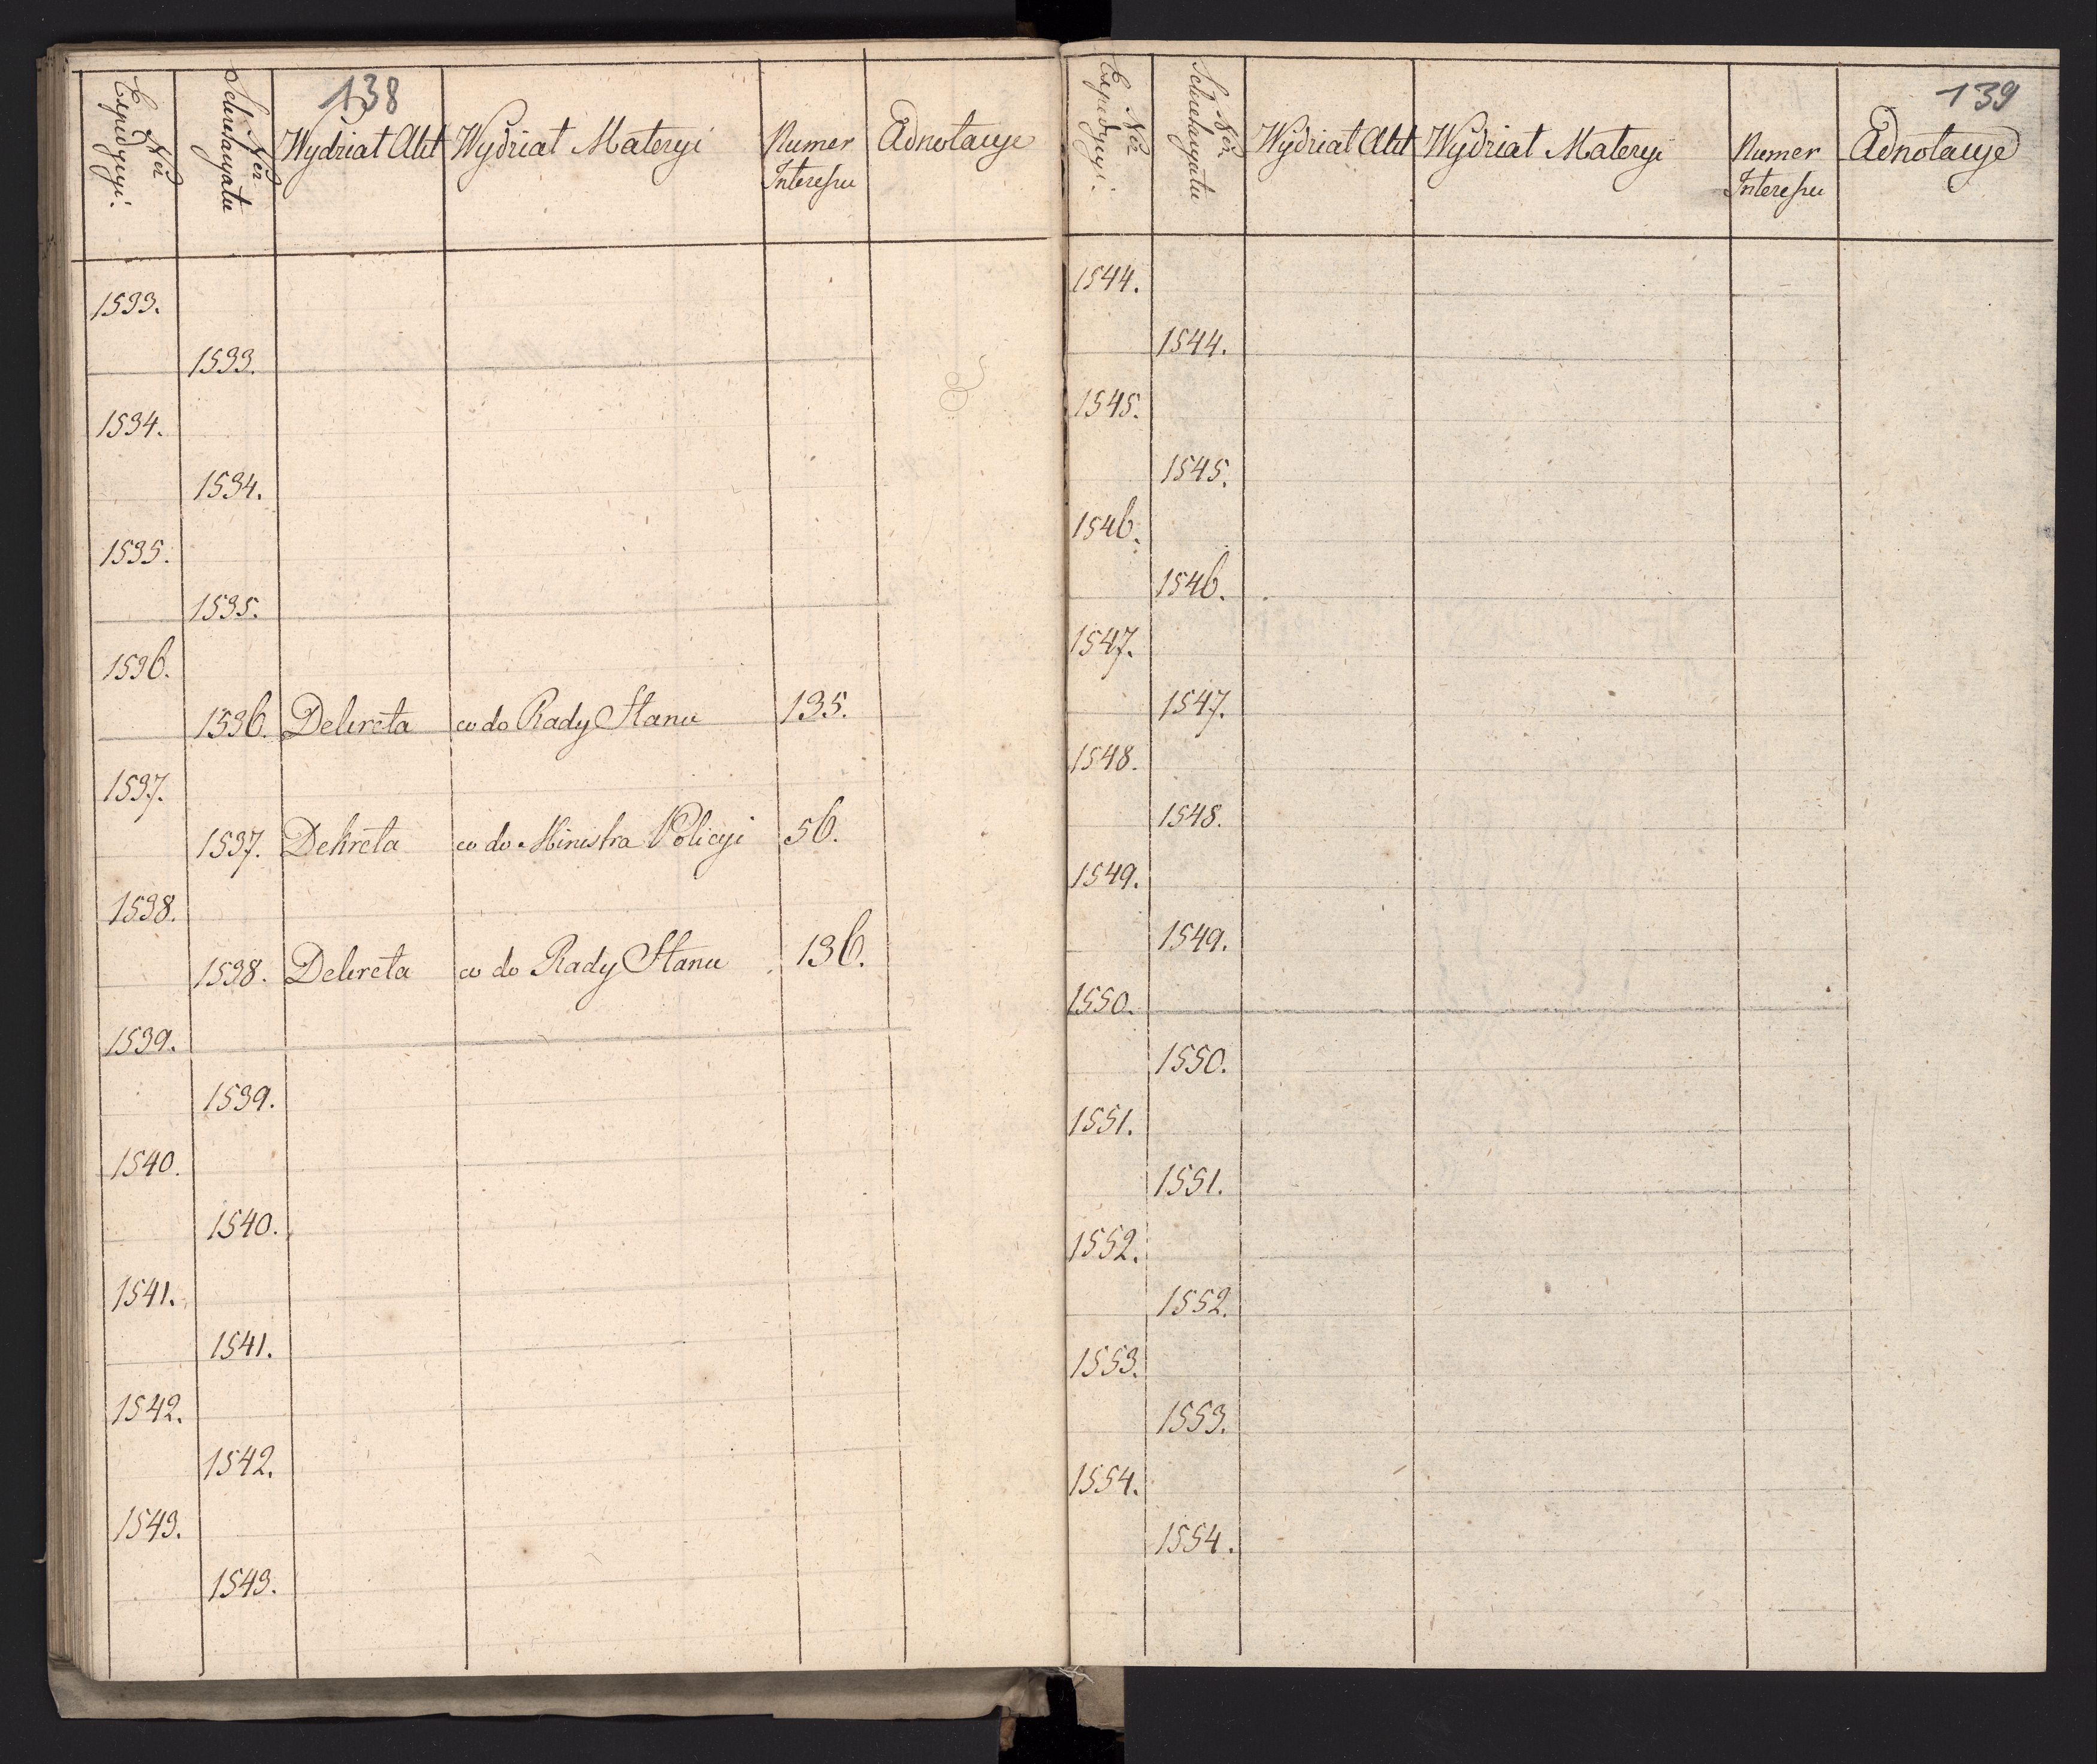 138
Nro Expedycyi.
Nro Sekretaryatu
Wydział Akt
Wydział Materyi
Numer
Interessu
Adnotacye
1533.
1533.
1534.
1534.
1535.
1535.
1536.
1536. Dekreta co do Rady Stanu 135.
1537.
1537. Dekreta co do Ministra Policyi 56.
1538.
1538. Dekreta co do Rady Stanu 136.
1539.
1539.
1540.
1540.
1541.
1541.
1542.
1542.
1543.
1543.
139
Nro Expedycyi.
Nro Sekretaryatu
Wydział Akt
Wydział Materyi
Numer
Interessu
Adnotacye
1544.
1544.
1545.
1545.
1546.
1546.
1547.
1547.
1548.
1548.
1549.
1549.
1550.
1550.
1551.
1551.
1552.
1552.
1553.
1553.
1554.
1554.